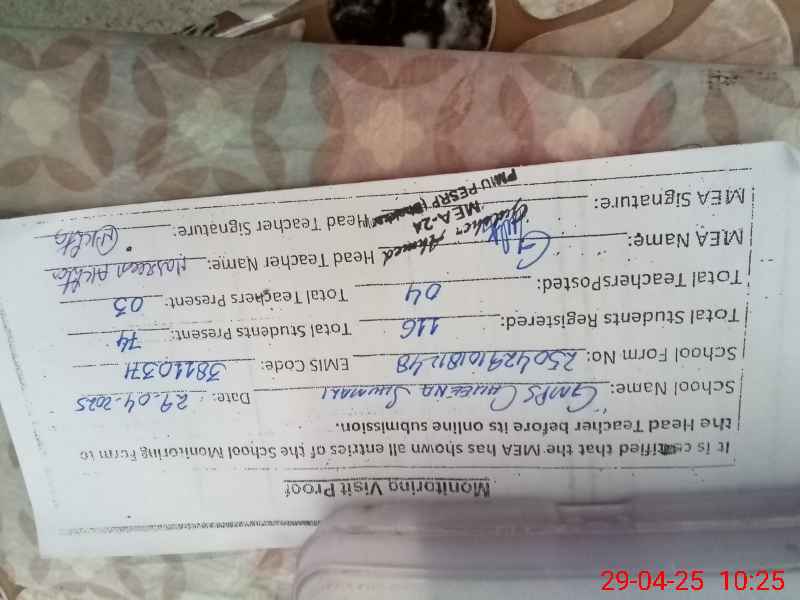 Monitoring Visit Proof
It is certified that the MEA has shown all entries of the School Monitoring Form to
the Head Teacher before its online submission.
School Name: GMPS Date: 29.04.2025
School Form No: EMIS Code:
Total Students Registered: 116 Total Students Present: 74
Total TeachersPosted: 04 Total Teachers Present: 03
MEA Name: Ahmed Head Teacher Name: Nasreen Akhtar
MEA Signature: Head Teacher Signature:
MEA-24
PMIU PESRP
29-04-25 10:25